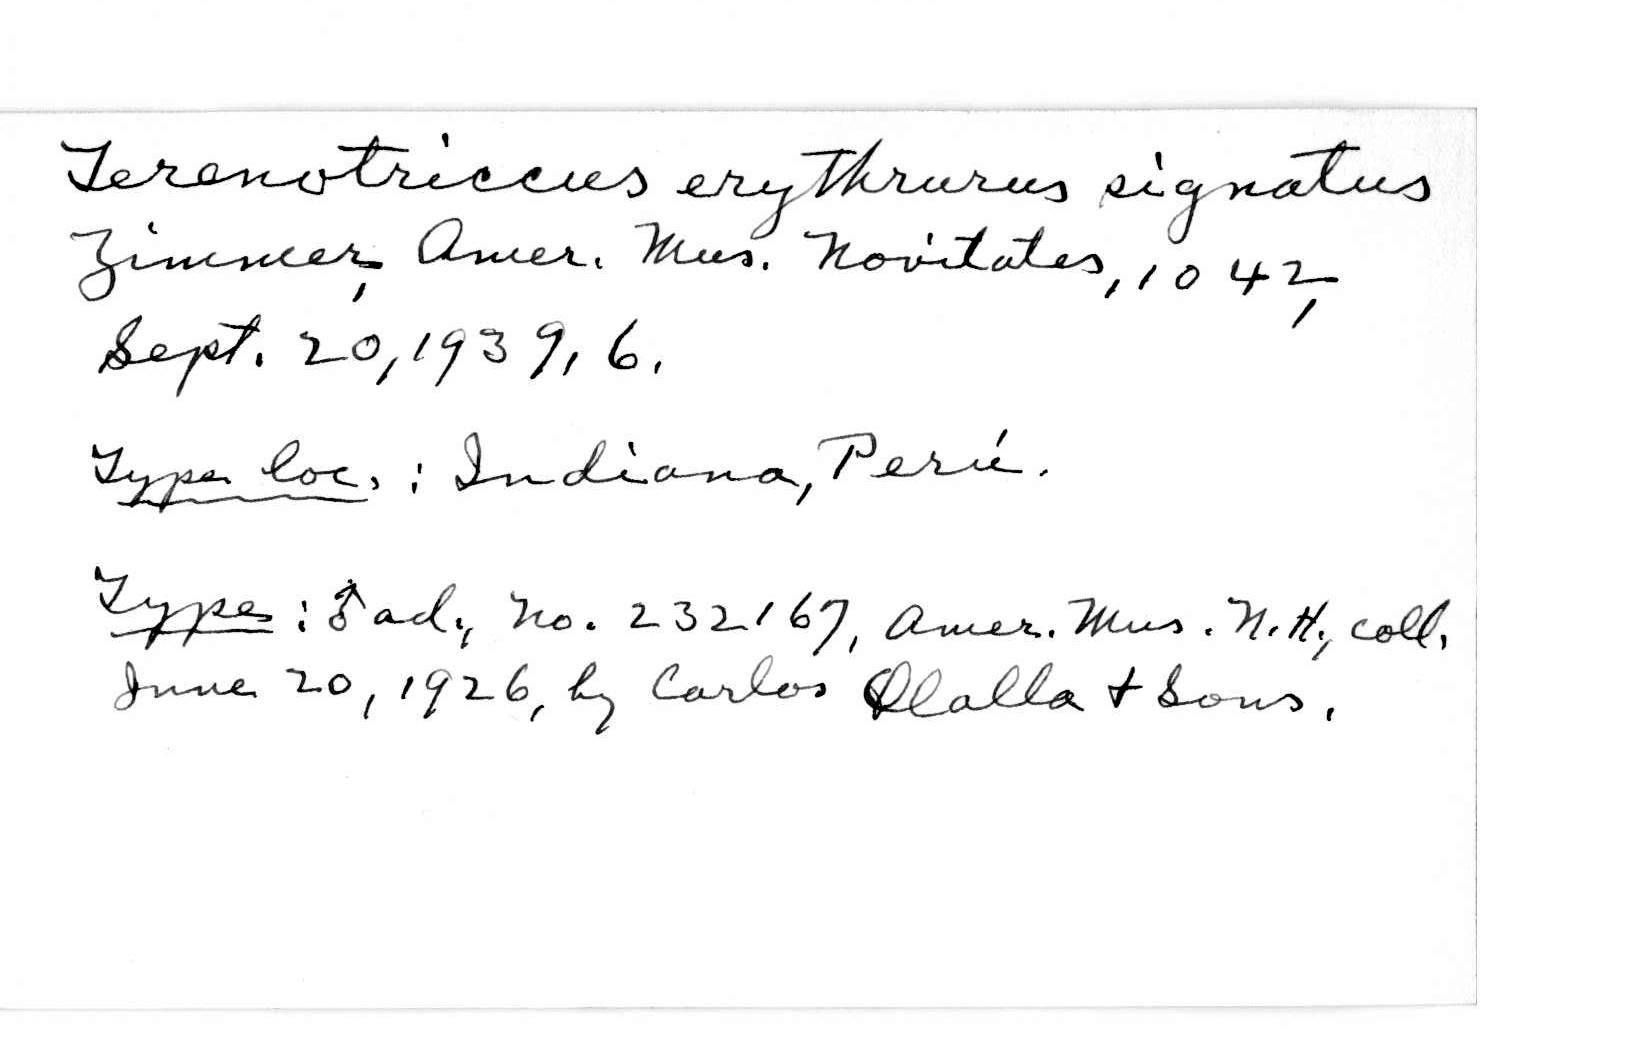 Terenotriccus erythrurus signatus
Zimmer, Amer. Mus. Novitates, 1042,
Sept. 20, 1939, 6.
Type loc. : Indiana, Perú.
Type : ♂ ad., No. 232167, Amer. Mus. N.H., coll.
June 20, 1926, by Carlos Olalla + Sons.